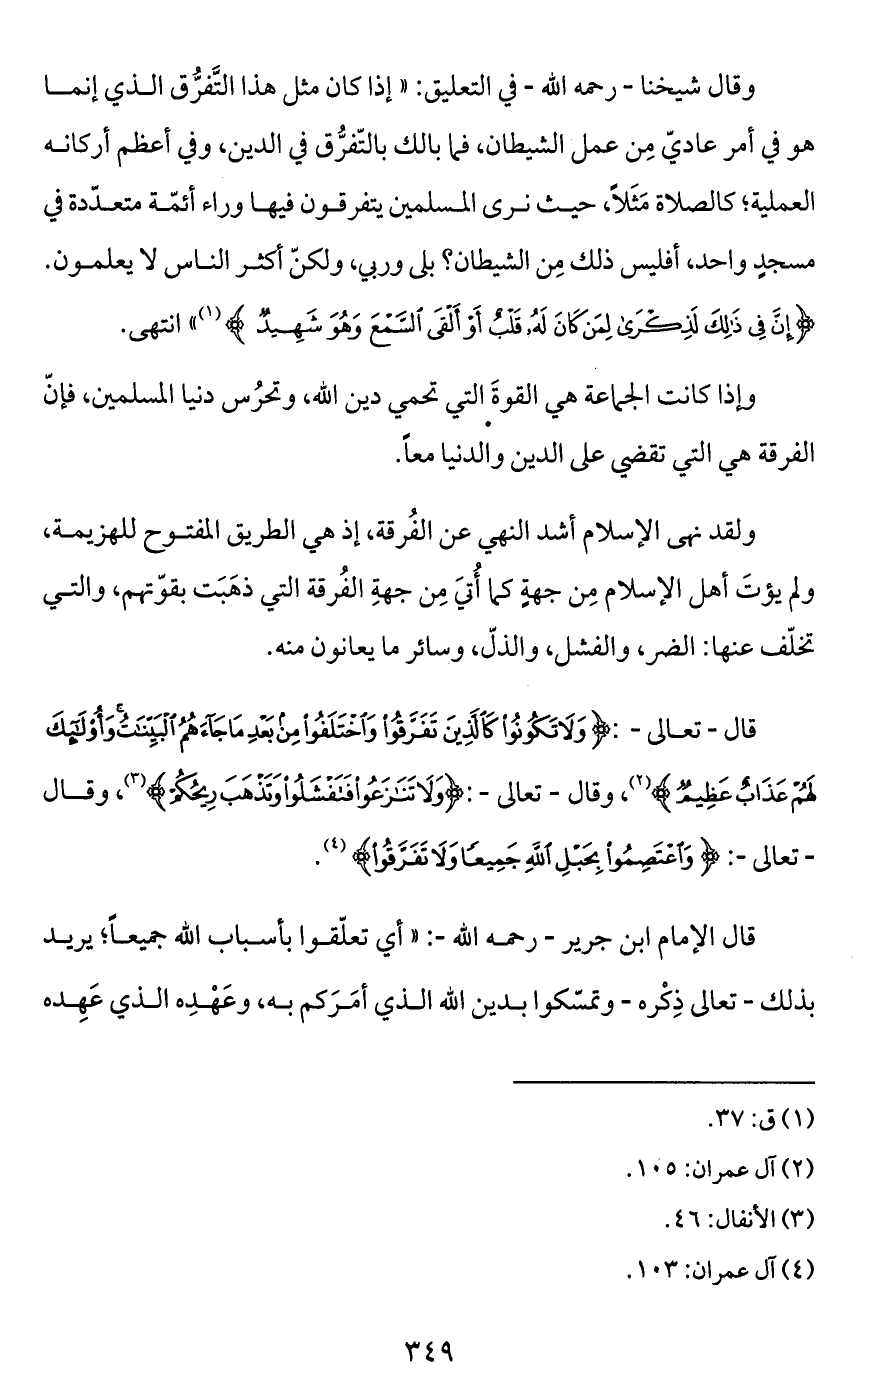 وقال شيخنا - رحمه الله - في التعليق: « إذا كان مثل هذا التَّفرُّق الذي إنما
هو في أمر عاديّ مِن عمل الشيطان، فما بالك بالتّفرُّق في الدين، وفي أعظم أركانه
العملية؛ كالصلاة مَثَلاً، حيث نرى المسلمين يتفرقون فيها وراء أئمّة متعدّدة في
مسجدٍ واحد، أفليس ذلك مِن الشيطان؟ بلى وربي، ولكنّ أكثر الناس لا يعلمون.
﴿إِنَّ فِى ذَٰلِكَ لَذِكْرَىٰ لِمَن كَانَ لَهُۥ قَلْبٌ أَوْ أَلْقَى ٱلسَّمْعَ وَهُوَ شَهِيدٌ ﴾(١)» انتهى.
وإذا كانت الجماعة هي القوةَ التي تحمي دين الله، وتحرُس دنيا المسلمين، فإنّ
الفرقة هي التي تقضي على الدين والدنيا معاً.
ولقد نهى الإسلام أشد النهي عن الفُرقة، إذ هي الطريق المفتوح للهزيمة،
ولم يؤتَ أهل الإسلام مِن جهةٍ كما أُتيَ مِن جهةِ الفُرقة التي ذهَبَت بقوّتهم، والتي
تخلّف عنها: الضر، والفشل، والذلّ، وسائر ما يعانون منه.
قال - تعالى - :﴿وَلَا تَكُونُوا۟ كَٱلَّذِينَ تَفَرَّقُوا۟ وَٱخْتَلَفُوا۟ مِنۢ بَعْدِ مَا جَآءَهُمُ ٱلْبَيِّنَٰتُ ۚ وَأُو۟لَٰٓئِكَ
لَهُمْ عَذَابٌ عَظِيمٌ ﴾(٢)، وقال - تعالى -:﴿وَلَا تَنَٰزَعُوا۟ فَتَفْشَلُوا۟ وَتَذْهَبَ رِيحُكُمْ ﴾(٣)، وقال
- تعالى -: ﴿ وَٱعْتَصِمُوا۟ بِحَبْلِ ٱللَّهِ جَمِيعًا وَلَا تَفَرَّقُوا۟﴾ (٤).
قال الإمام ابن جرير - رحمه الله -: « أي تعلّقوا بأسباب الله جميعاً؛ يريد
بذلك - تعالى ذِكْره - وتمسّكوا بدين الله الذي أمَرَكم به، وعَهْدِه الذي عَهِده
(١) ق: ٣٧.
(٢) آل عمران: ١٠٥.
(٣) الأنفال: ٤٦.
(٤) آل عمران: ١٠٣.
٣٤٩